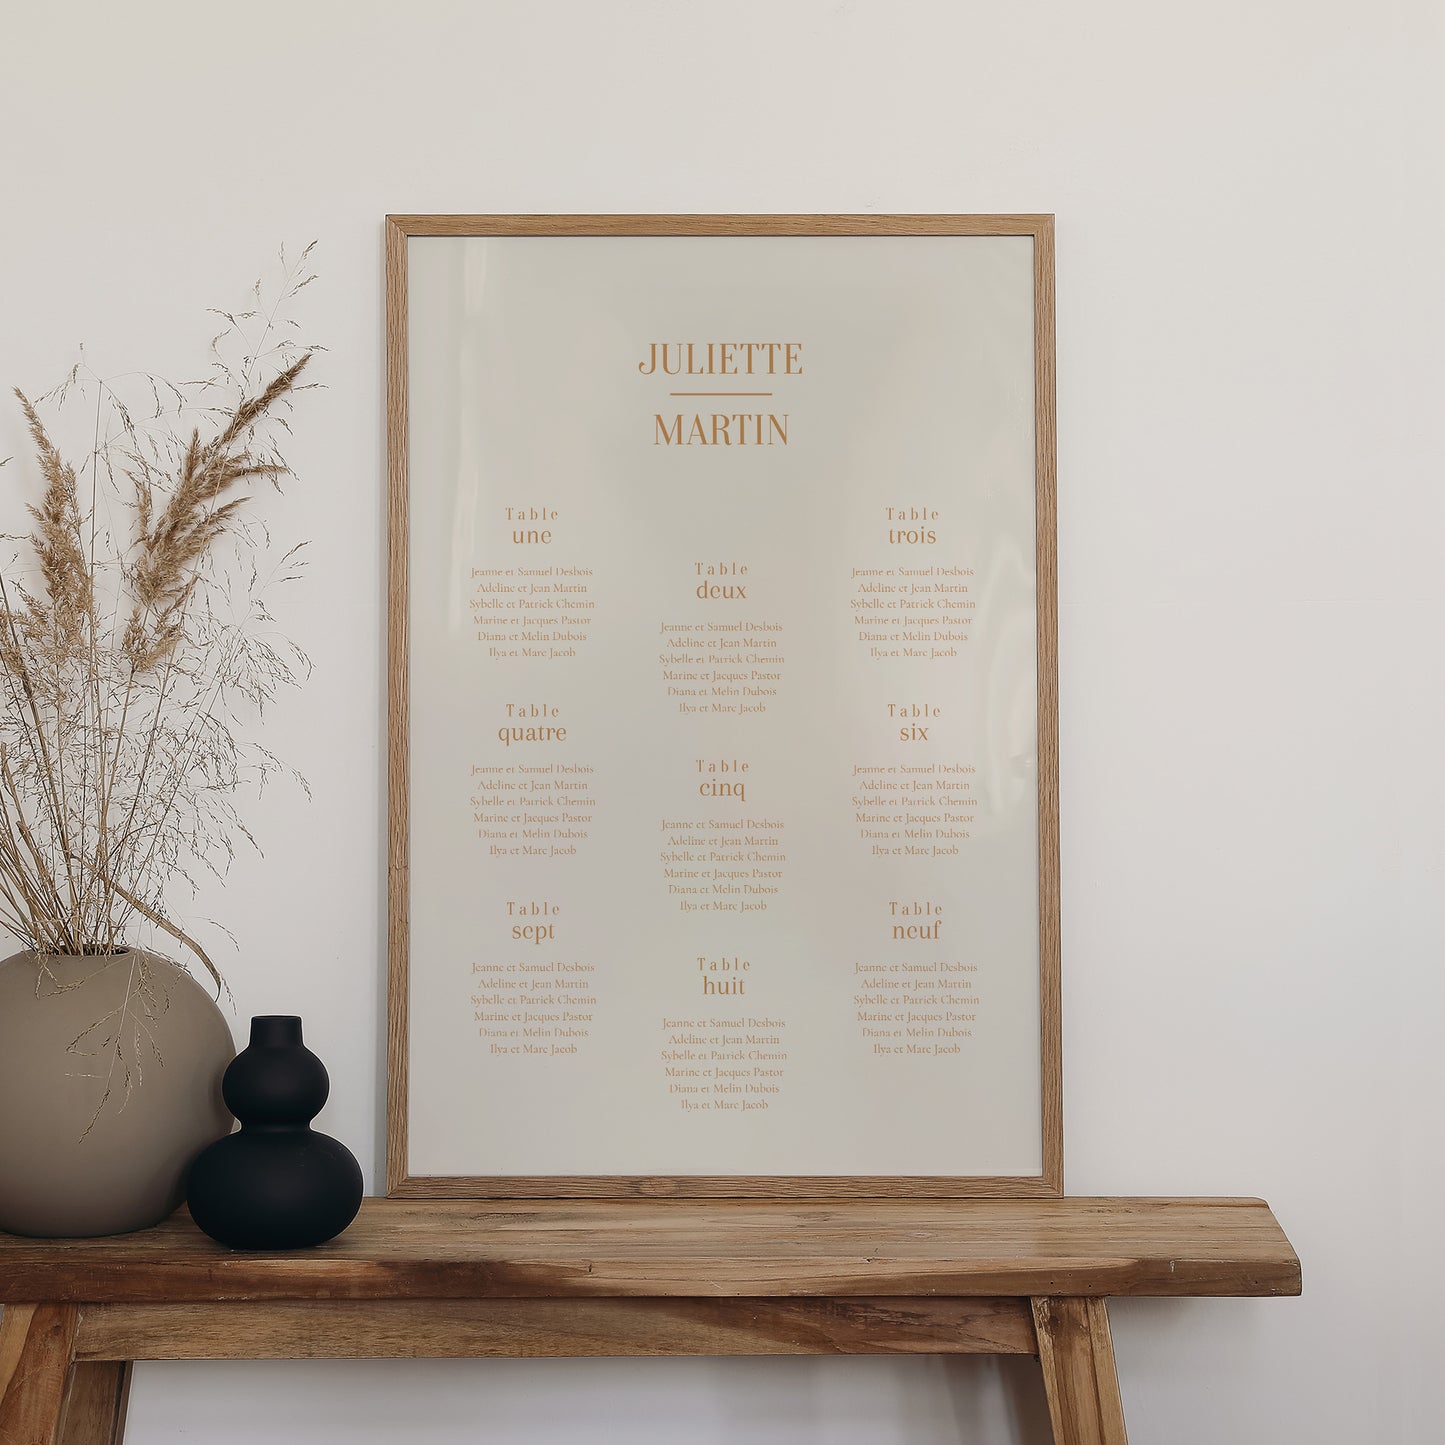 JULIETTE
MARTIN
Table
une
Jeanne et Samuel Desbois
Adeline et Jean Martin
Sybelle et Patrick Chemin
Marine et Jacques Pastor
Diana et Melin Dubois
Ilya et Marc Jacob
Table
deux
Jeanne et Samuel Desbois
Adeline et Jean Martin
Sybelle et Patrick Chemin
Marine et Jacques Pastor
Diana et Melin Dubois
Ilya et Marc Jacob
Table
trois
Jeanne et Samuel Desbois
Adeline et Jean Martin
Sybelle et Patrick Chemin
Marine et Jacques Pastor
Diana et Melin Dubois
Ilya et Marc Jacob
Table
quatre
Jeanne et Samuel Desbois
Adeline et Jean Martin
Sybelle et Patrick Chemin
Marine et Jacques Pastor
Diana et Melin Dubois
Ilya et Marc Jacob
Table
cinq
Jeanne et Samuel Desbois
Adeline et Jean Martin
Sybelle et Patrick Chemin
Marine et Jacques Pastor
Diana et Melin Dubois
Ilya et Marc Jacob
Table
six
Jeanne et Samuel Desbois
Adeline et Jean Martin
Sybelle et Patrick Chemin
Marine et Jacques Pastor
Diana et Melin Dubois
Ilya et Marc Jacob
Table
sept
Jeanne et Samuel Desbois
Adeline et Jean Martin
Sybelle et Patrick Chemin
Marine et Jacques Pastor
Diana et Melin Dubois
Ilya et Marc Jacob
Table
huit
Jeanne et Samuel Desbois
Adeline et Jean Martin
Sybelle et Patrick Chemin
Marine et Jacques Pastor
Diana et Melin Dubois
Ilya et Marc Jacob
Table
neuf
Jeanne et Samuel Desbois
Adeline et Jean Martin
Sybelle et Patrick Chemin
Marine et Jacques Pastor
Diana et Melin Dubois
Ilya et Marc Jacob